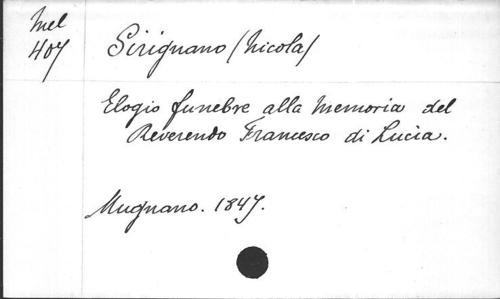 Mel
407
Sirignano (Nicola)
Elogio funebre alla Memoria del
Reverendo Francesco di Lucia.
Mugnano. 1847.